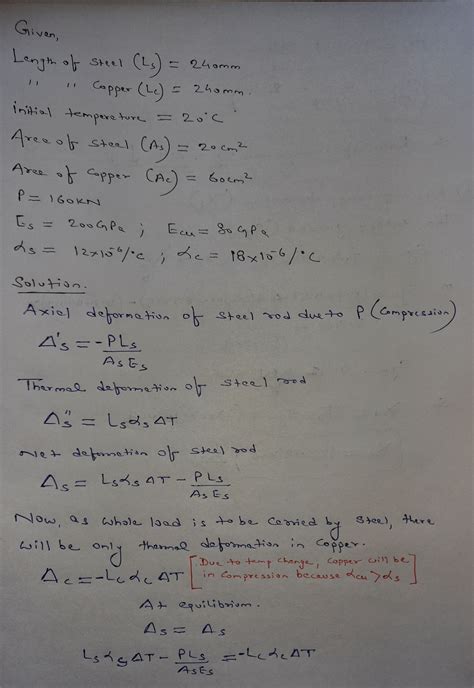 Given,
Length of steel (Ls) = 240mm
" " Copper (Lc) = 240mm.
initial temperature = 20°C
Area of steel (As) = 20cm²
Area of Copper (Ac) = 60cm²
P = 160KN
Es = 200GPa ; Ecu = 80GPa
αs = 12×10⁻⁶/°C ; αc = 18×10⁻⁶/°C
Solution.
Axial deformation of steel rod due to P (Compression)
Δ's = -PLs / AsEs
Thermal deformation of steel rod
Δ"s = LsαsΔT
Net deformation of steel rod
Δs = LsαsΔT - PLs / AsEs
Now, as whole load is to be Carried by Steel, there
will be only thermal deformation in Copper.
Δc = -LcαcΔT [Due to temp change, Copper will be
in Compression because αcu > αs]
At equilibrium.
Δs = Δs
LsαsΔT - PLs / AsEs = -LcαcΔT